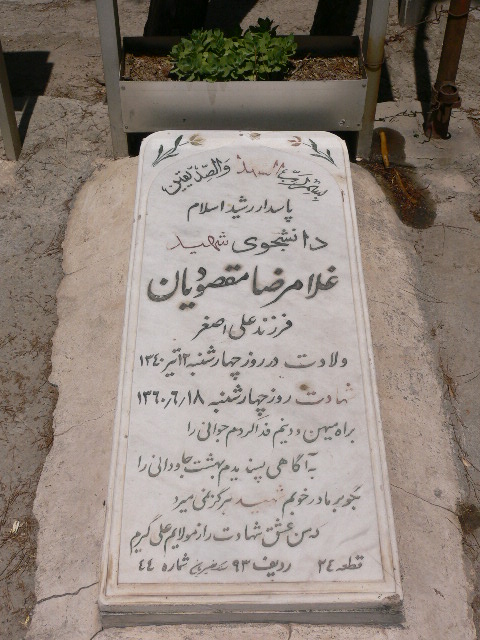 بسم رب الشهداء والصدیقین
پاسدار رشید اسلام
دانشجوی شهید
غلامرضا مقصودیان
فرزند علی اصغر
ولادت در روز چهارشنبه ۱۲ تیر ۱۳۴۰
شهادت روز چهارشنبه ۱۳۶۰٫۶٫۱۸
براه میهن و دینم فدا کردم جوانی را
به آگاهی پسندیدم بهشت جاودانی را
بگو بر مادر خوبم شهید هرگز نمی میرد
درس عشق شهادت را ز مولایم علی گیرم
قطعه ۲۴ ردیف ۹۳ شماره ۴۴